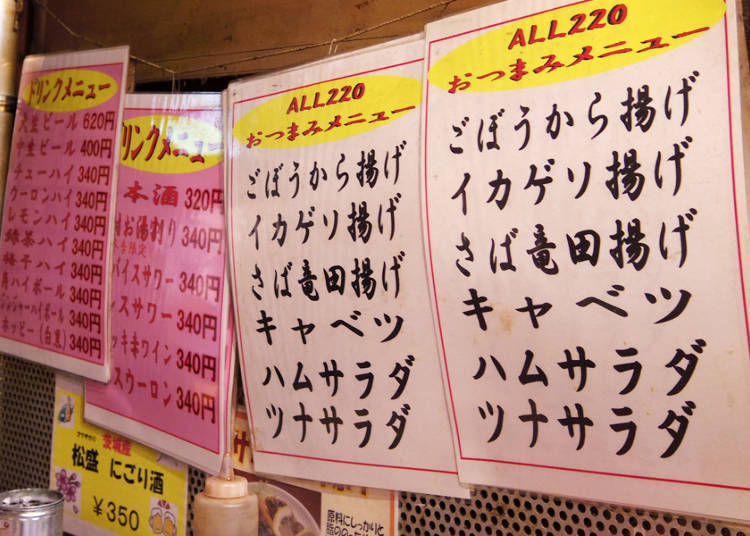 ドリンクメニュー
大生ビール 620円
中生ビール 400円
チューハイ 340円
ウーロンハイ 340円
レモンハイ 340円
緑茶ハイ 340円
梅干ハイ 340円
角ハイボール 340円
ジンジャーハイボール 340円
ホッピー(白黒) 340円
ドリンクメニュー
本酒 320円
お湯割り 340円
イスサワー 340円
スサワー 340円
ッキ赤ワイン 340円
スウーロン 340円
茨城産
松盛 にごり酒
¥350
ALL220
おつまみメニュー
ごぼうから揚げ
イカゲソ揚げ
さば竜田揚げ
キャベツ
ハムサラダ
ツナサラダ
原料にしっかりと
ALL220
おつまみメニュー
ごぼうから揚げ
イカゲソ揚げ
さば竜田揚げ
キャベツ
ハムサラダ
ツナサラダ